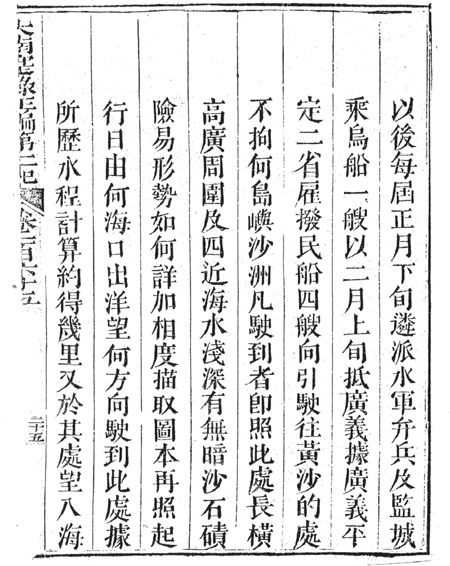 以後每屆正月下旬遴派水軍弁兵及監城
乘烏船一艘以二月上旬抵廣義據廣義平
定二省雇撥民船四艘向引駛往黃沙的處
不拘何島嶼沙洲凡駛到者卽照此處長橫
高廣周圍及四近海水淺深有無暗沙石磧
險易形勢如何詳加相度描取圖本再照起
行日由何海口出洋望何方向駛到此處據
所歷水程計算約得幾里又於其處望入海
大南寔錄正編第二紀 卷一百六十五
二十五